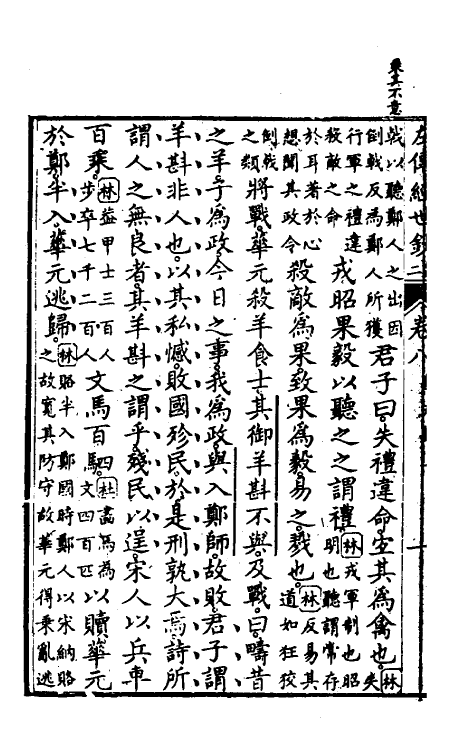 乘其不意
左傳經世鈔二 卷八
戟以聽鄭人之出因
倒戟反為鄭人所獲
君子曰失禮違命宜其為禽也林失
行軍之禮違
殺敵之命
戎昭果毅以聽之之謂禮林戎軍制也昭
明也聽謂常存
於耳著於心
想聞其政令
殺敵為果致果為毅易之戮也林反易其
道如狂狡
倒戟
之類
將戰華元殺羊食士其御羊斟不與及戰曰疇昔
之羊子為政今日之事我為政與入鄭師故敗君子謂
羊斟非人也以其私憾敗國殄民於是刑孰大焉詩所
謂人之無良者其羊斟之謂乎殘民以逞宋人以兵車
百乘林蓋甲士三百人
步卒七千二百人
文馬百駟杜畫馬為
文四百匹
以贖華元
於鄭半入華元逃歸林賂半入鄭國時鄭人以宋納賂
之故寬其防守故華元得乘亂逃